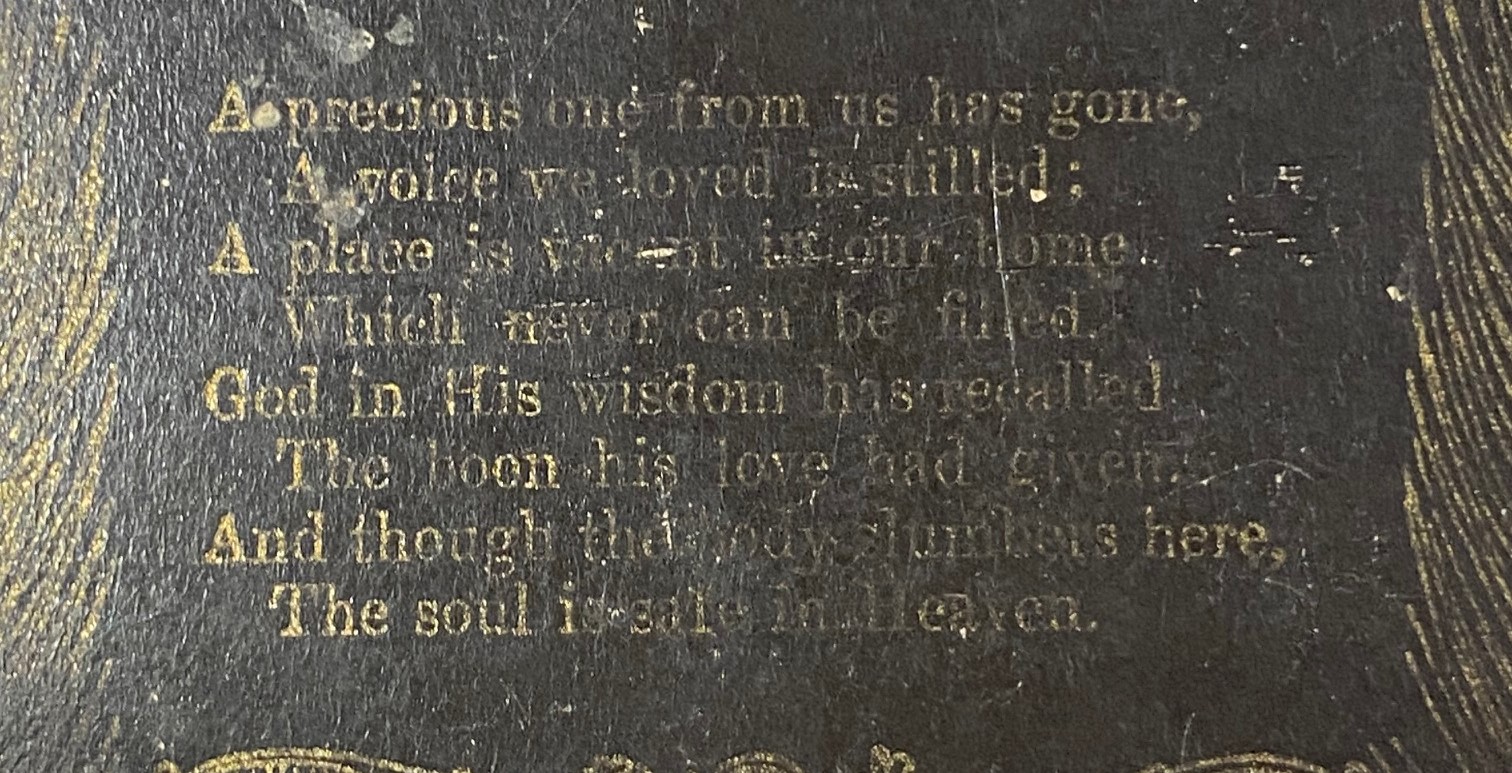 A precious one from us has gone,
A voice we loved is stilled;
A place is vacant in our home
Which never can be filled.
God in His wisdom has recalled
The boon his love had given.
And though the body slumbers here,
The soul is safe in Heaven.